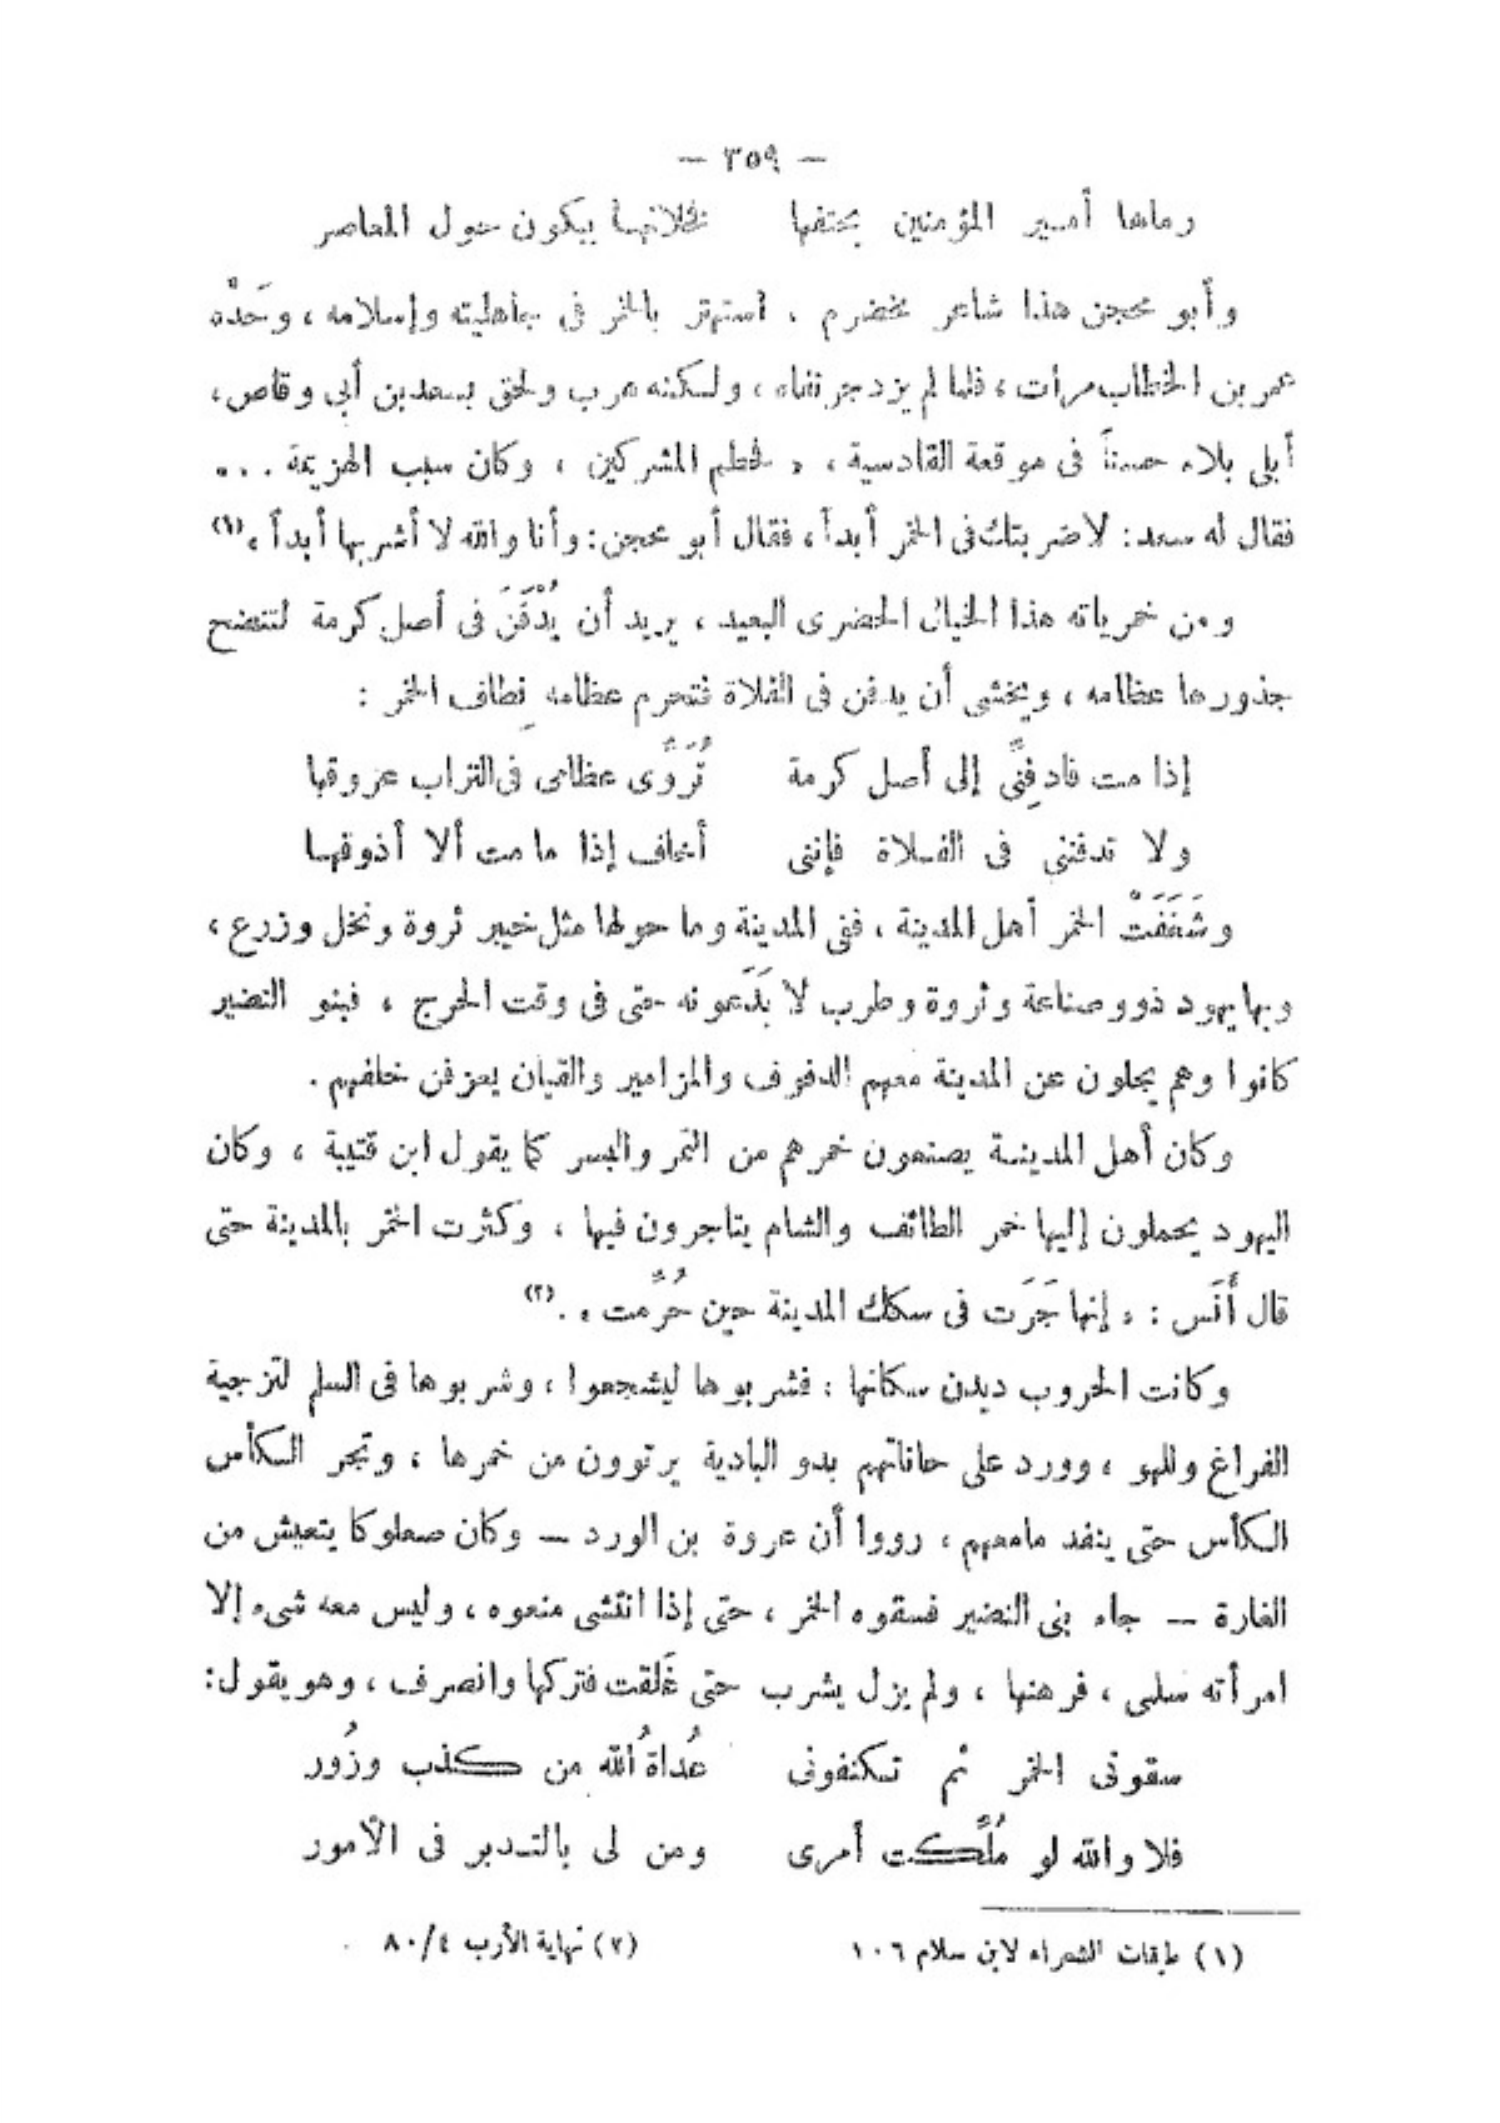 — ٣٥٩ —
رماها أمير المؤمنين بحتفها فخلانها يبكون حول المعاصر
وأبو محجن هذا شاعر مخضرم . استهتر بالخمر فى جاهليته وإسلامه ، وحَدَّه
عمر بن الخطاب مرات ، فلما لم يزدجر نفاه ، ولكنه هرب ولحق بسعد بن أبي وقاص ،
أبلى بلاء حسناً فى موقعة القادسية ، « فحطم المشركين ، وكان سبب الهزيمة . . .
فقال له سعد : لا ضربتك فى الخمر أبداً ، فقال أبو محجن : وأنا والله لا أشربها أبداً » (١)
ومن خمرياته هذا الخيال الحضرى البعيد ، يريد أن يُدْفَنَ فى أصل كرمة لتنضح
جذورها عظامه ، ويخشى أن يدفن فى الفلاة فتحرم عظامه قِطاف الخمر :
إذا مت فادفِنِّى إلى أصل كرمة تُرَوِّى عظامى فى التراب عروقها
ولا تدفننى فى الفلاة فإننى أخاف إذا ما مت ألا أذوقها
وشَغَفَتْ الخمر أهل المدينة ، ففى المدينة وما حولها مثل خيبر ثروة ونخل وزرع ،
وبها يهود ذوو صناعة وثروة وطرب لا يَدَعونه حتى فى وقت الحرج ، فبنو النضير
كانوا وهم يجلون عن المدينة معهم الدفوف والمزامير والقيان يعزفن خلفهم .
وكان أهل المدينة يصنعون خمرهم من التمر والبسر كما يقول ابن قتيبة ، وكان
اليهود يحملون إليها خمر الطائف والشام يتاجرون فيها ، وكثرت الخمر بالمدينة حتى
قال أَنَس : « إنها جَرَت فى سكك المدينة حين حُرِّمت » . (٢)
وكانت الحروب ديدن سكانها : فشربوها ليشجعوا ، وشربوها فى السلم لتزجية
الفراغ وللهو ، وورد على حاناتهم بدو البادية يرتوون من خمرها ، وتجر الكأس
الكأس حتى ينفد ما معهم ، رووا أن عروة بن الورد — وكان صعلوكا يتعيش من
الغارة — جاء بنى النضير فسقوه الخمر ، حتى إذا انتشى منعوه ، وليس معه شىء إلا
امرأته سلمى ، فرهنها ، ولم يزل يشرب حتى غَلقت فتركها وانصرف ، وهو يقول :
سقونى الخمر ثم تكنفونى عُداةُ الله من كذب وزُور
فلا والله لو مُلِّكت أمرى ومن لى بالتدبر فى الأمور
(١) طبقات الشعراء لابن سلام ١٠٦ (٢) نهاية الأرب ٨٠/٤